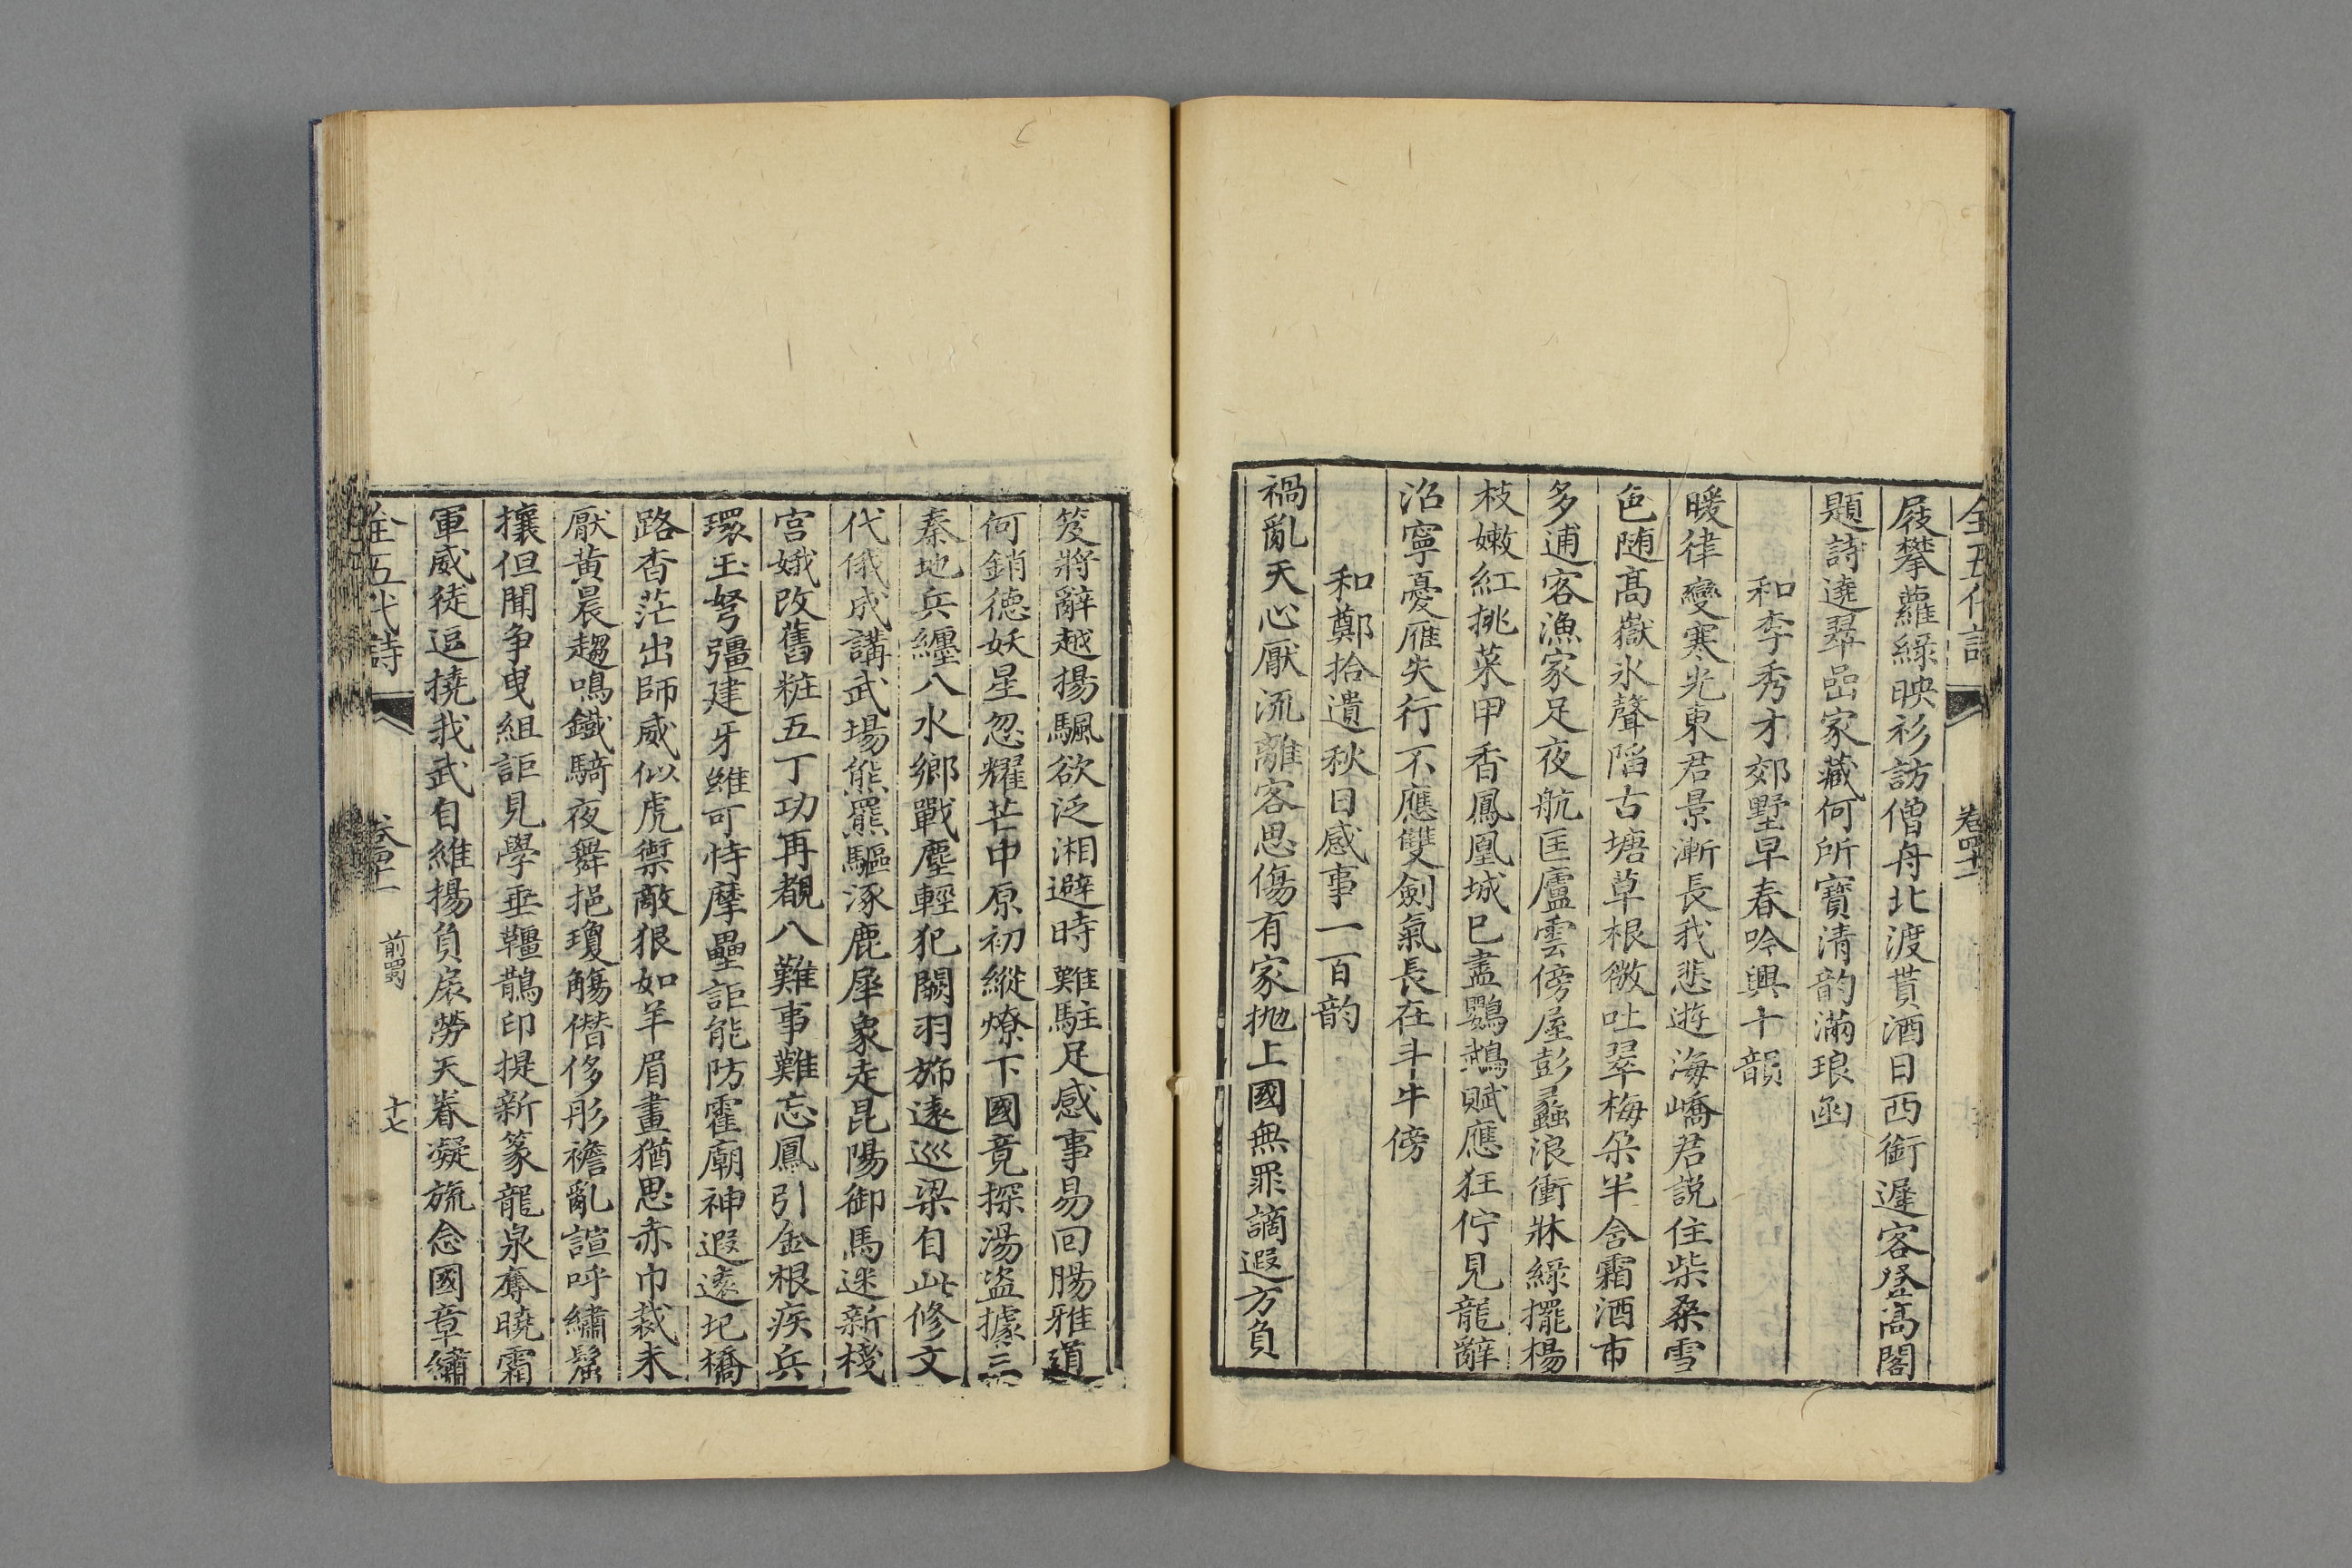 全五代詩
卷四十一
屐攀蘿綠映衫訪僧舟北渡貰酒日西銜遲客登高閣
題詩遶翠嵒家藏何所寶清韵滿琅函
和李秀才郊墅早春吟興十韻
暖律變寒光東君景漸長我悲遊海嶠君説住柴桑雪
色随高嶽氷聲陷古塘草根微吐翠梅朶半含霜酒市
多逋客漁家足夜航匡廬雲傍屋彭蠡浪衝牀綠擺楊
枝嫩紅挑菜甲香鳳凰城已盡鸚鵡賦應狂佇見龍辭
沼寧憂雁失行不應雙劍氣長在斗牛傍
和鄭拾遺秋日感事一百韵
禍亂天心厭流離客思傷有家抛上國無罪謫遐方負
笈將辭越揚颿欲泛湘避時難駐足感事易回腸雅道
何銷德妖星忽耀芒中原初縱燎下國竟探湯盗據三
秦地兵纏八水鄉戰塵輕犯闕羽斾逺巡梁自此修文
代俄成講武場熊羆驅涿鹿犀象走昆陽御馬迷新棧
宫娥改舊粧五丁功再覩八難事難忘鳳引金根疾兵
環玉弩彊建牙雖可恃摩壘詎能防霍廟神遐逺圯橋
路杳茫出師威似虎禦敵狠如羊眉畫猶思赤巾裁未
厭黄晨趨鳴鐵騎夜舞挹瓊觴僭侈彤襜亂諠呼繡髷
攘但聞争曳組詎見學垂韁鵲印提新篆龍泉奪曉霜
軍威徒逗撓我武自維揚負扆勞天眷凝旒念國章繡
全五代詩
卷四十一
前蜀
十七